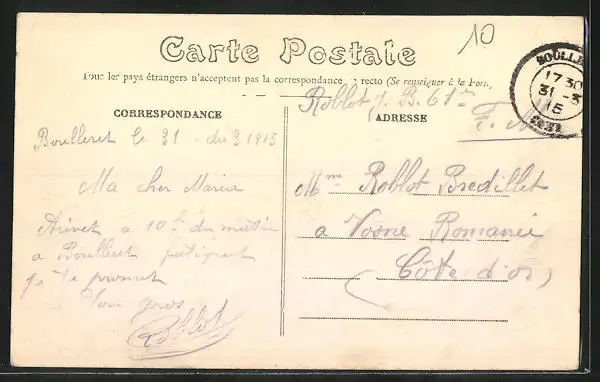 10
Carte Postale
Tous les pays étrangers n'acceptent pas la correspondance au recto (Se renseigner à la Poste)
BOULLE
17 30
31 -3
15
Roblot J. B. 61
F. M
CORRESPONDANCE
ADRESSE
Boulleret le 31 - du 3 1915
Ma cher Maria
Arivet a 10 h du mattin
a Boulleret
Ton gros
Roblot
Mme Roblot Bredillet
a Vosne Romanée
(Côte d'or)